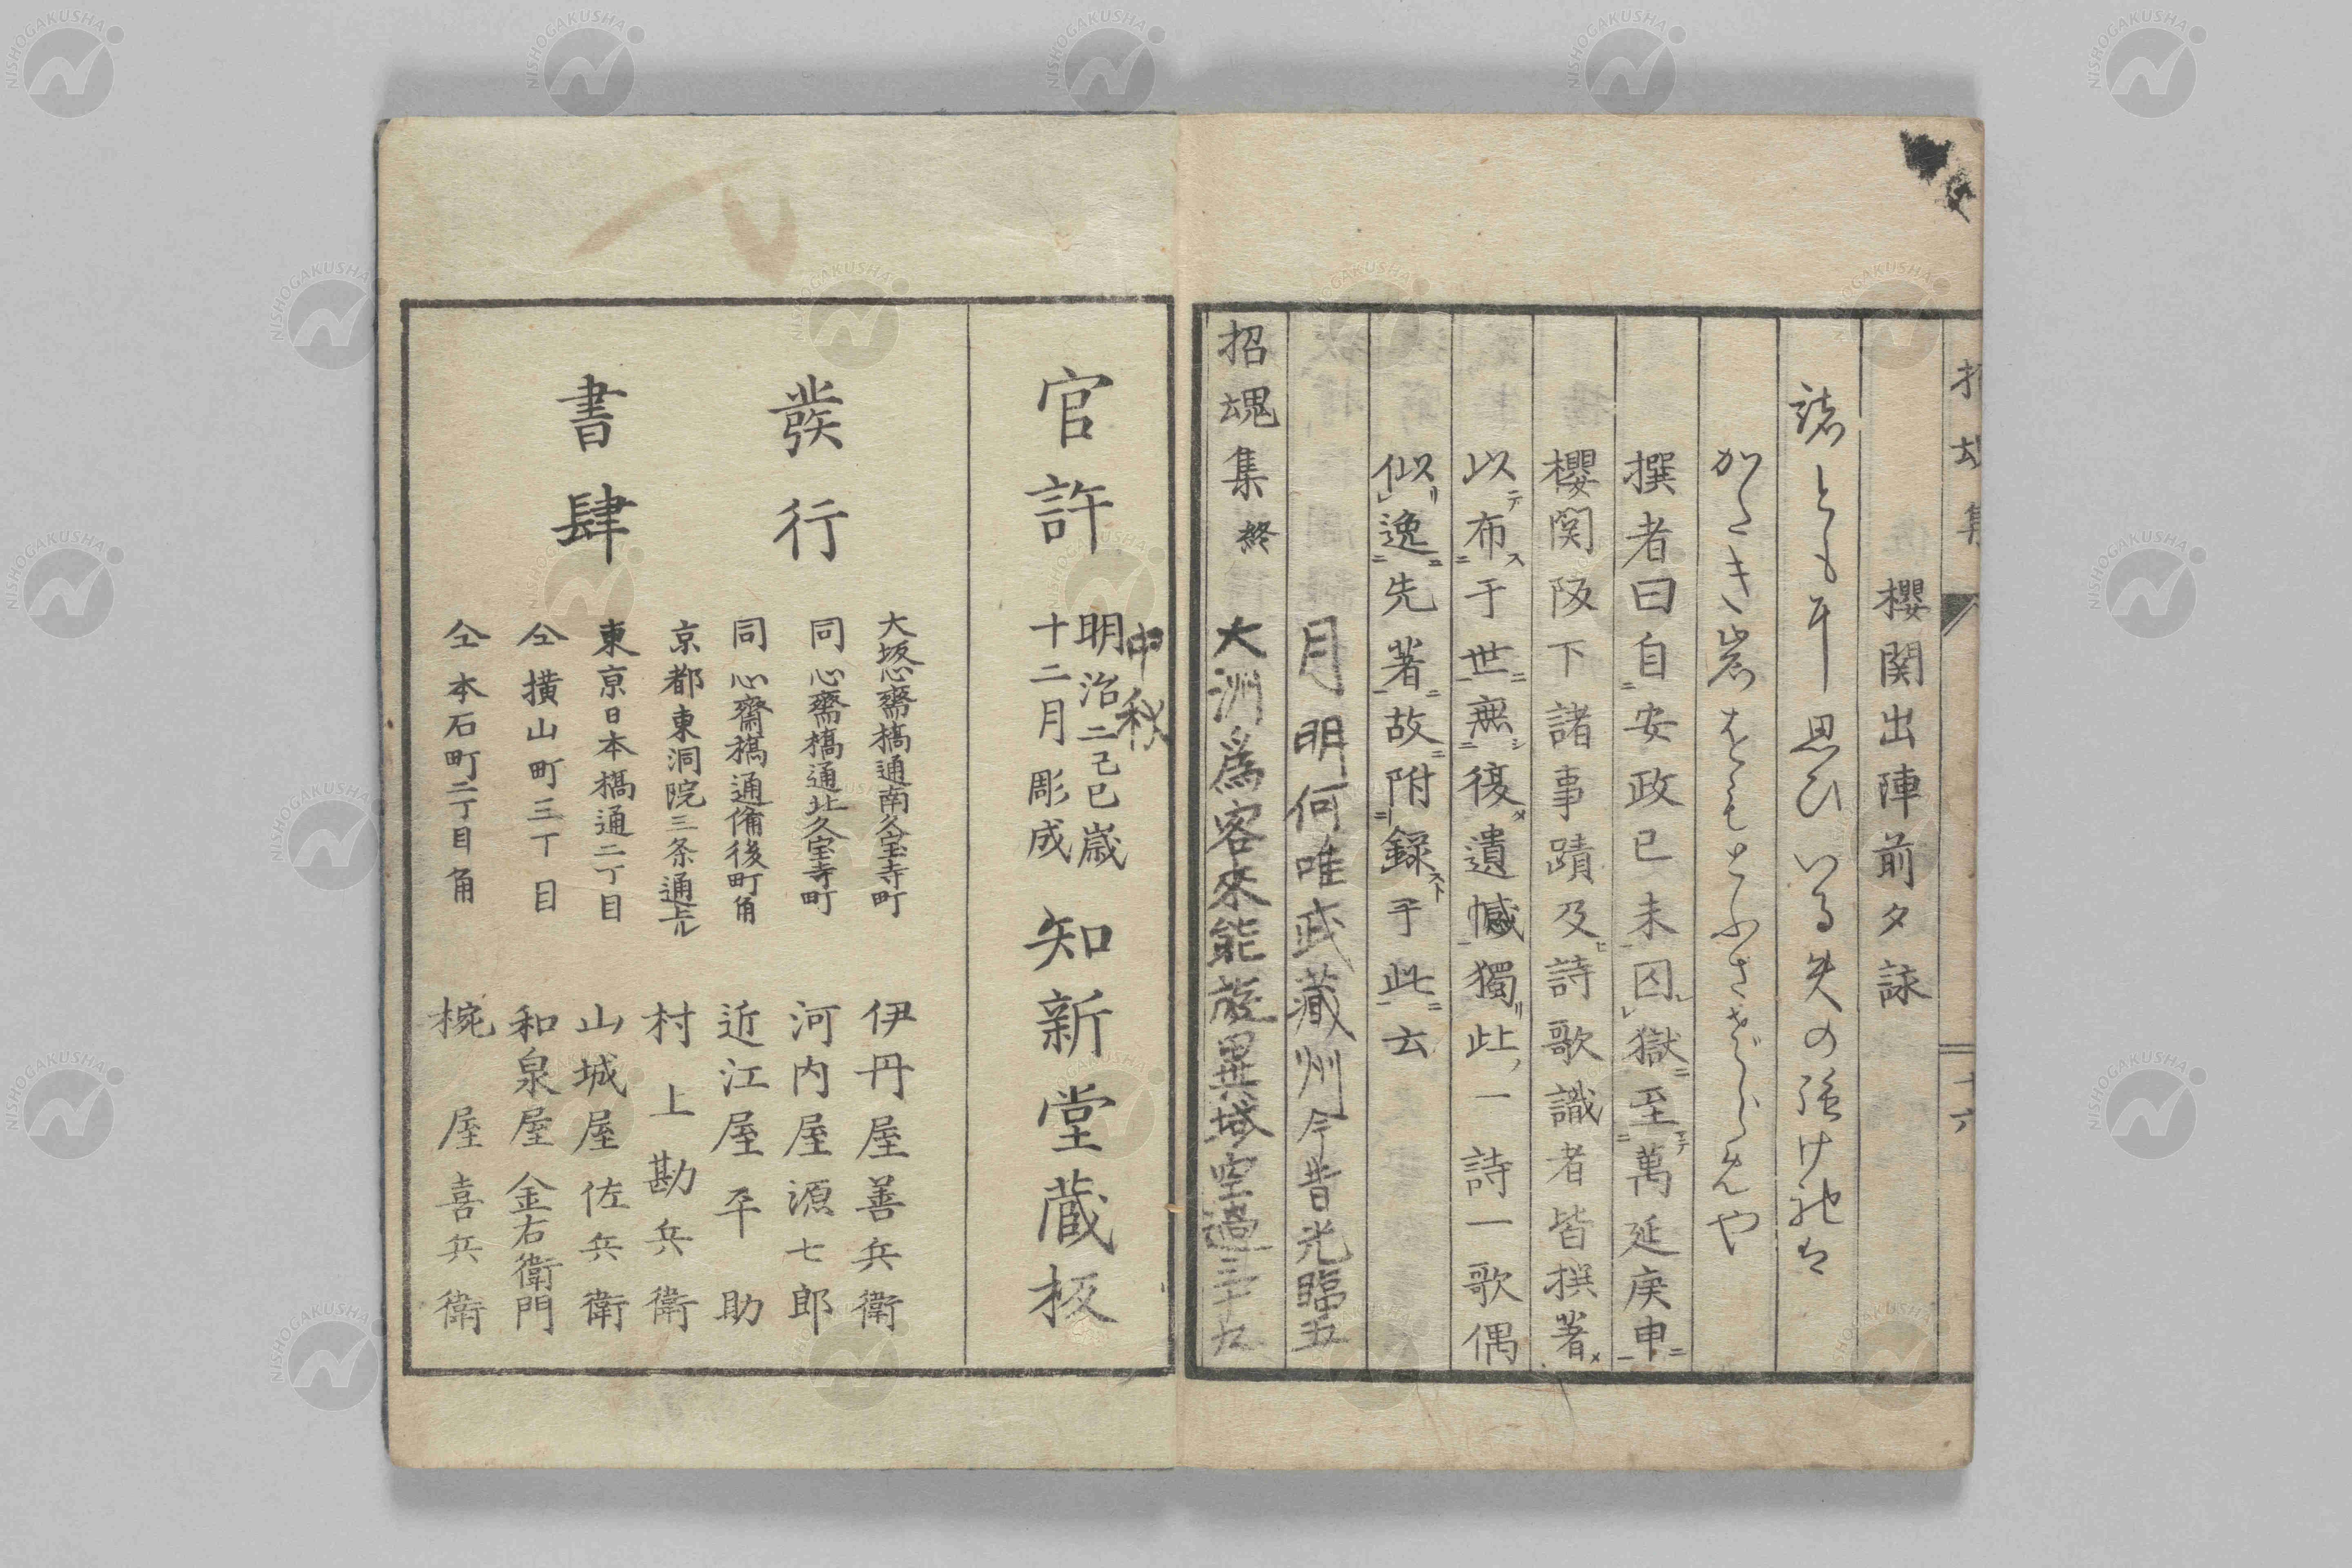 招魂集
十六
櫻関出陣前夕詠
諸ともに思ひいる矢の強けれは
かたき岩ほもとふさゞらめや
撰者曰自安政已未囚獄至萬延庚申
櫻関阪下諸事蹟及ヒ詩歌識者皆撰著メ
以テ布ス于世ニ無シ復メ遺憾獨リ此ノ一詩一歌偶
似スリ逸ニ先著ニ故ニ附録スト于此ニ云
月明何唯武藏州今昔光臨五
大洲為客來能旋異域空過三十九
招魂集 終
官許
中秋
明治二己巳歳
十二月彫成
知新堂蔵板
發行
書肆
大坂心齋橋通南久宝寺町 伊丹屋善兵衛
同心齋橋通北久宝寺町 河内屋源七郎
同心齋橋通備後町角 近江屋平助
京都東洞院三条通上ル 村上勘兵衛
東京日本橋通二丁目 山城屋佐兵衛
仝横山町三丁目 和泉屋金右衛門
仝本石町二丁目角 椀屋喜兵衛
NISHOGAKUSHA